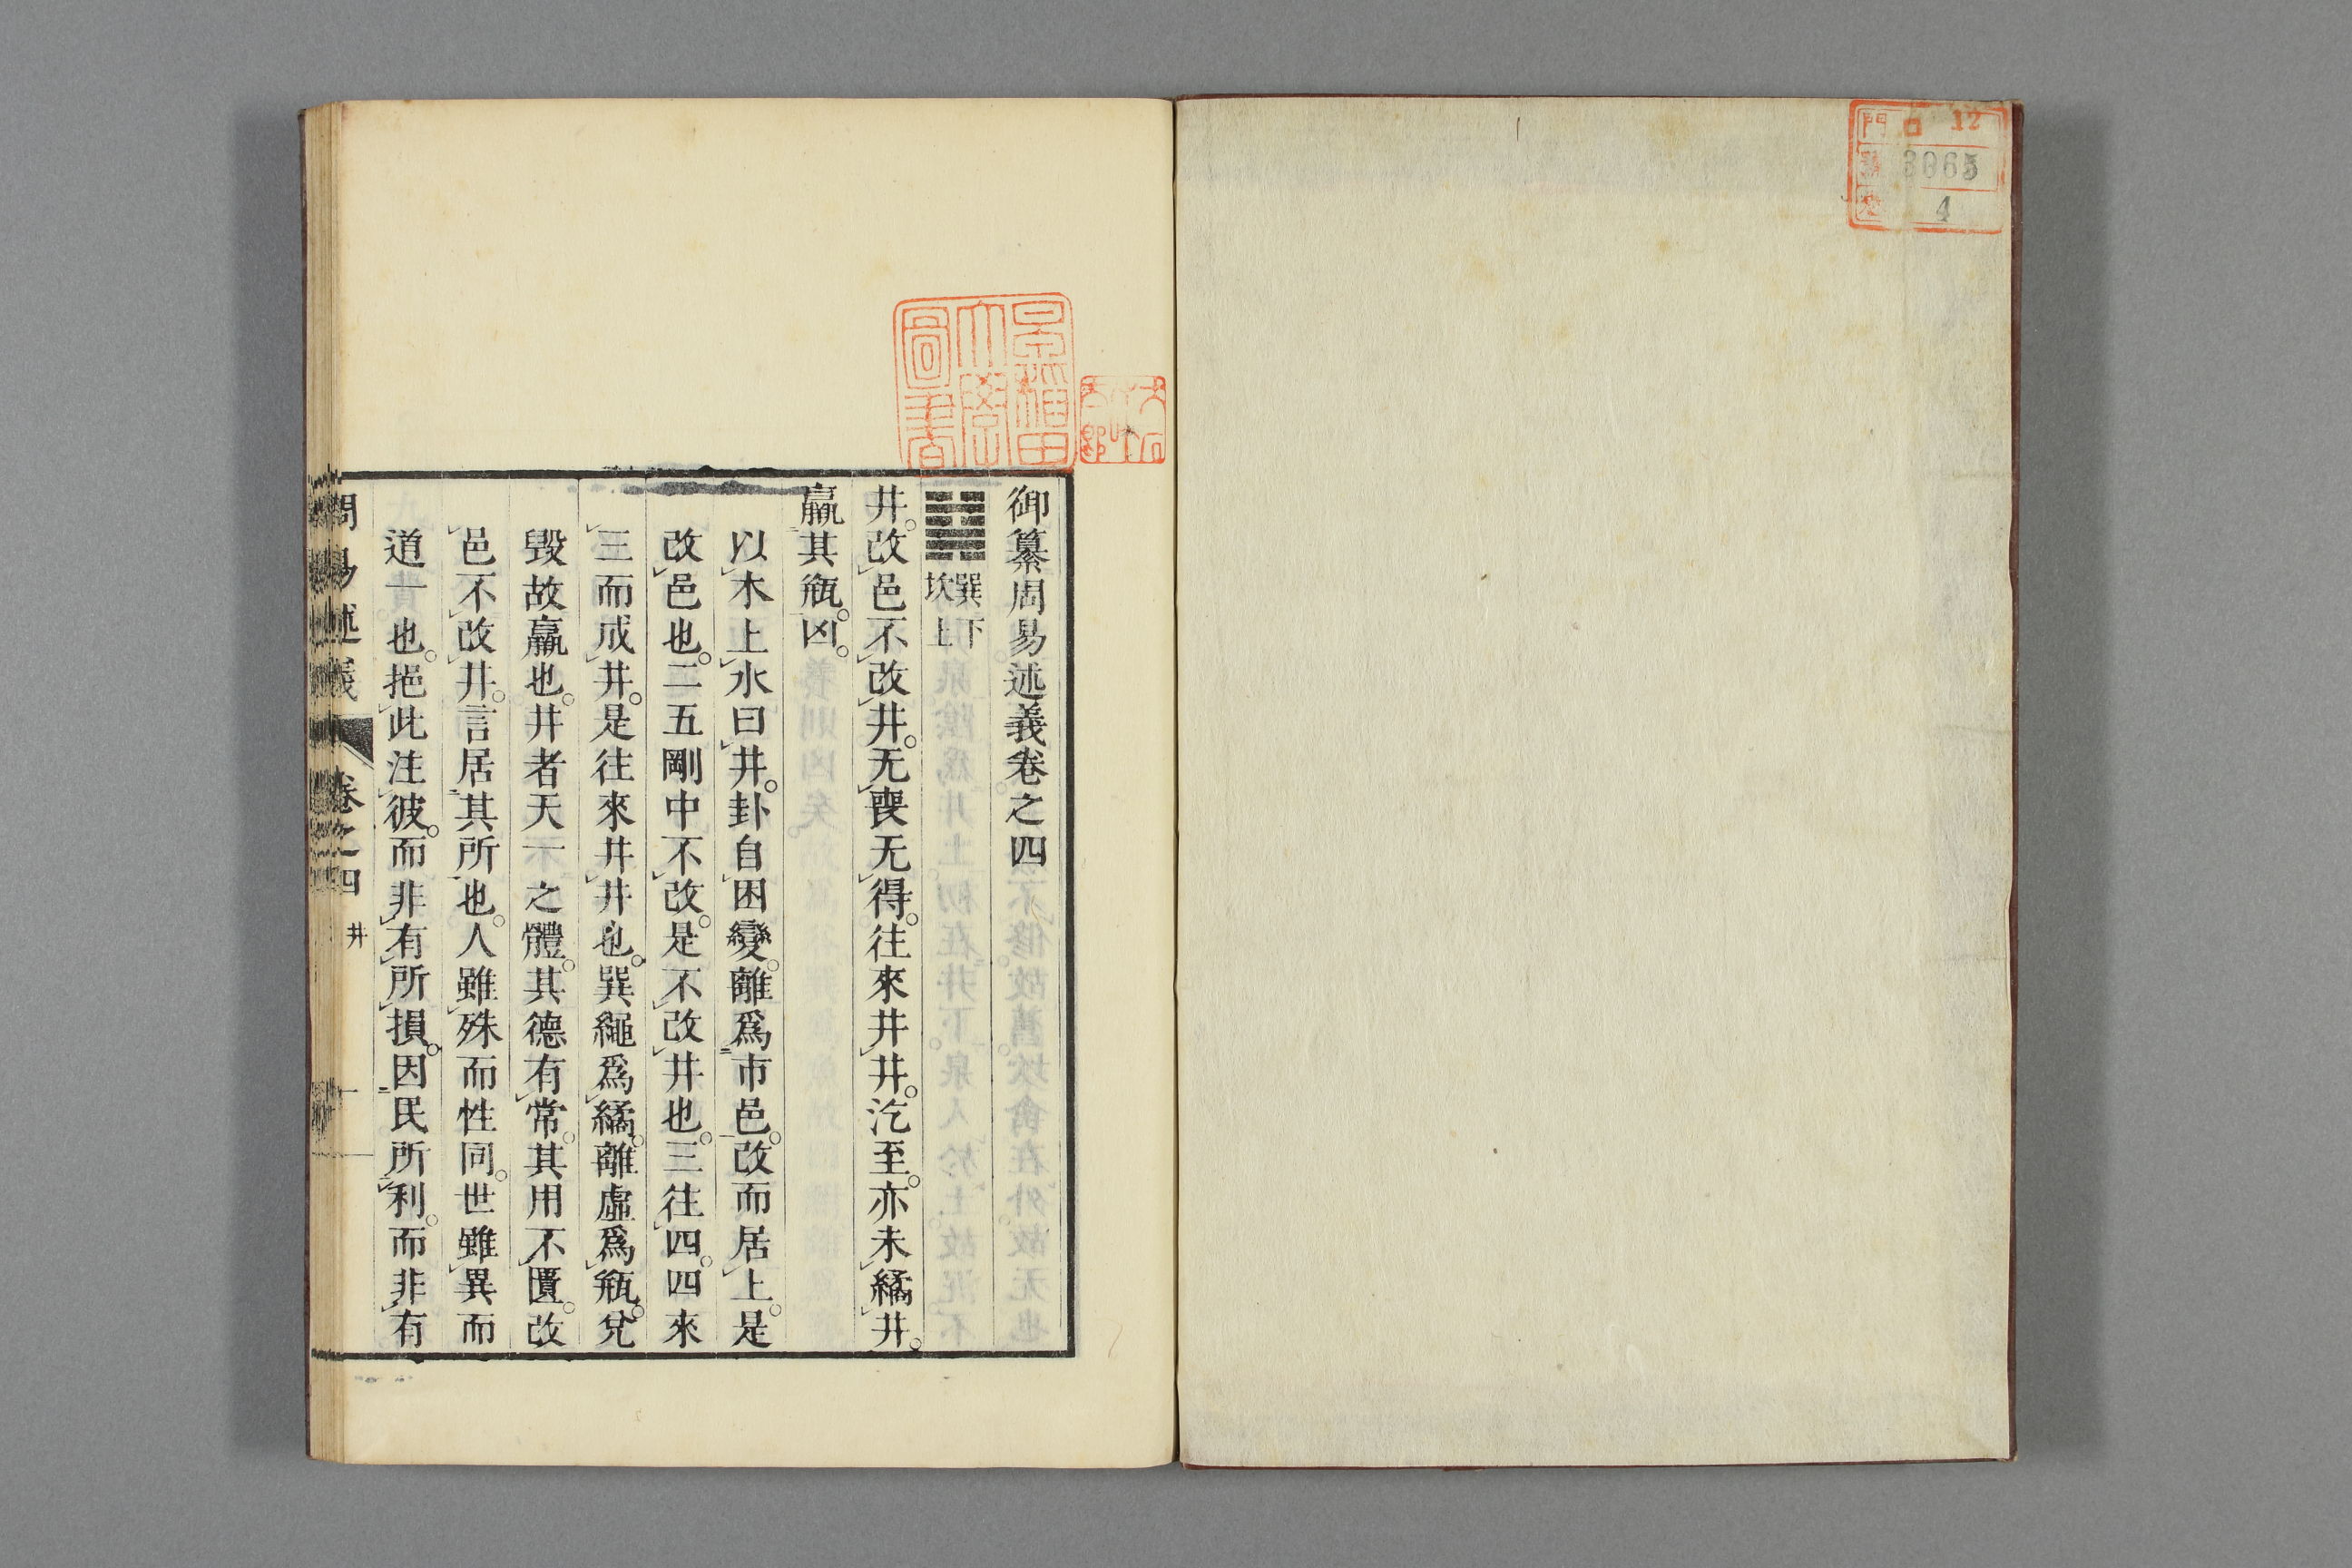 門 口 12
號 3065
卷 4
早稻田
大學
圖書
御纂周易述義卷之四
巽下
坎上
井。改邑不改井。无喪无得。往來井井。汔至。亦未繘井。
羸其瓶。凶。
以木上水曰井。卦自困變。離爲市邑。改而居上。是
改邑也。二五剛中不改。是不改井也。三往四。四來
三而成井。是往來井井也。巽繩爲繘。離虛爲瓶。兌
毀故羸也。井者天一之體。其德有常。其用不匱。改
邑不改井。言居其所也。人雖殊而性同。世雖異而
道一也。挹此注彼。而非有所損。因民所利。而非有
周易述義 卷之四 井 一